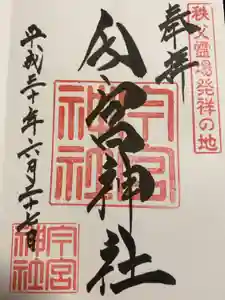 秩父霊場発祥の地
奉拝
今宮神社
今宮
神社
平成三十年六月二十七日
今宮
神社